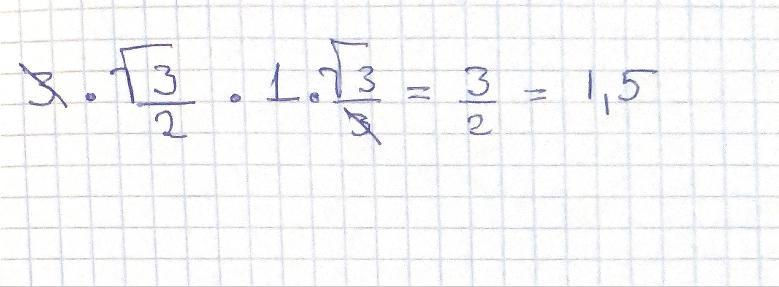 3 · √3/2 · 1 · √3/3 = 3/2 = 1,5